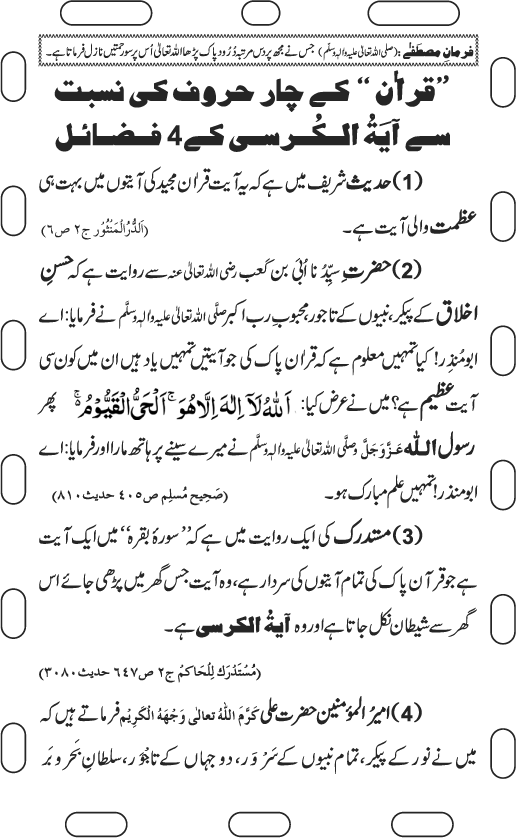 فرمانِ مصطفےٰ : (صلی اللہ تعالیٰ علیہ والہٖ وسلم) جس نے مجھ پر دس مرتبہ دُرود پاک پڑھا اللہ تعالیٰ اُس پر سو رحمتیں نازل فرماتا ہے۔
”قراٰن“ کے چار حروف کی نسبت
سے آیَۃُ الکُرسی کے 4 فضائل
(1) حدیث شریف میں ہے کہ یہ آیت قراٰن مجید کی آیتوں میں بہت ہی
عظمت والی آیت ہے۔ (اَلدُّرُالْمَنْثُوْر ج۲ ص۶)
(2) حضرتِ سیِّدُ نا اُبَیْ بن کَعب رضی اللہ تعالیٰ عنہ سے روایت ہے کہ حُسنِ
اخلاق کے پیکر، نبیوں کے تاجور، محبوبِ رب اکبر صلَّی اللہ تعالیٰ علیہ والہٖ وسلَّم نے فرمایا: اے
ابو مُنذِر! کیا تمہیں معلوم ہے کہ قراٰن پاک کی جو آیتیں تمہیں یاد ہیں ان میں کون سی
آیت عظیم ہے؟ میں نے عرض کیا: اَللّٰهُ لَاۤ اِلٰهَ اِلَّا هُوَۚ اَلْحَیُّ الْقَیُّوْمُ ۚ۬ پھر
رسول اللہ عَزَّوَجَلَّ وصلَّی اللہ تعالیٰ علیہ والہٖ وسلَّم نے میرے سینے پر ہاتھ مارا اور فرمایا: اے
ابو منذر! تمہیں علم مبارک ہو۔ (صَحِیح مُسلِم ص۴۰۵ حدیث۸۱۰)
(3) مستدرک کی ایک روایت میں ہے کہ ’’سورۂ بقرہ‘‘ میں ایک آیت
ہے جو قرآن پاک کی تمام آیتوں کی سردار ہے، وہ آیت جس گھر میں پڑھی جائے اس
گھر سے شیطان نکل جاتا ہے اور وہ آیۃُ الکرسی ہے۔
(مُسْتَدْرَك لِلْحَاكِمْ ج۲ ص۶۴۷ حدیث۳۰۸۰)
(4) امیرُ المؤمنین حضرت علی کَرَّمَ اللهُ تعالٰی وَجْهَهُ الْکَرِیْم فرماتے ہیں کہ
میں نے نور کے پیکر، تمام نبیوں کے سَرْوَر، دو جہاں کے تاجْوَر، سلطانِ بَحْر و بَر